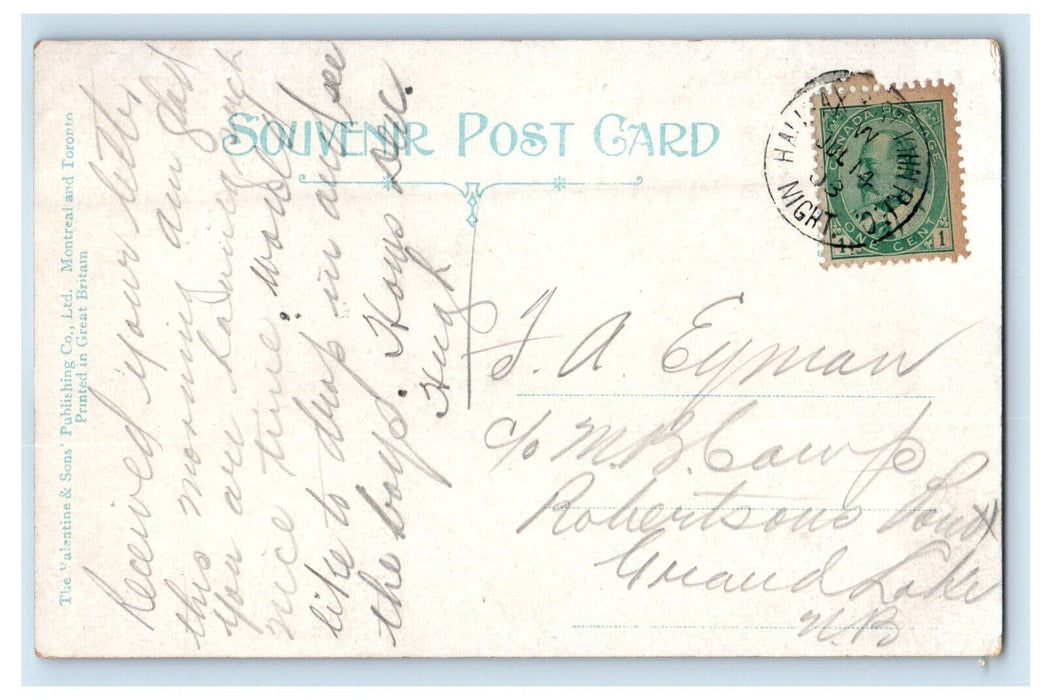 SOUVENIR POST CARD
The Valentine & Sons' Publishing Co., Ltd. Montreal and Toronto
Printed in Great Britain
Received your letter
this morning am glad
you are having such
nice time. would
like to drop in and see
the boys. Hows Doc.
Hugh
HALIFAX & ST JOHN R.P.O.
W
JUL 14
NIGHT
CANADA POSTAGE
ONE CENT
1
A. Eyman
c/o M. B. Camp
Robertsons Point
Grand Lake
N.B